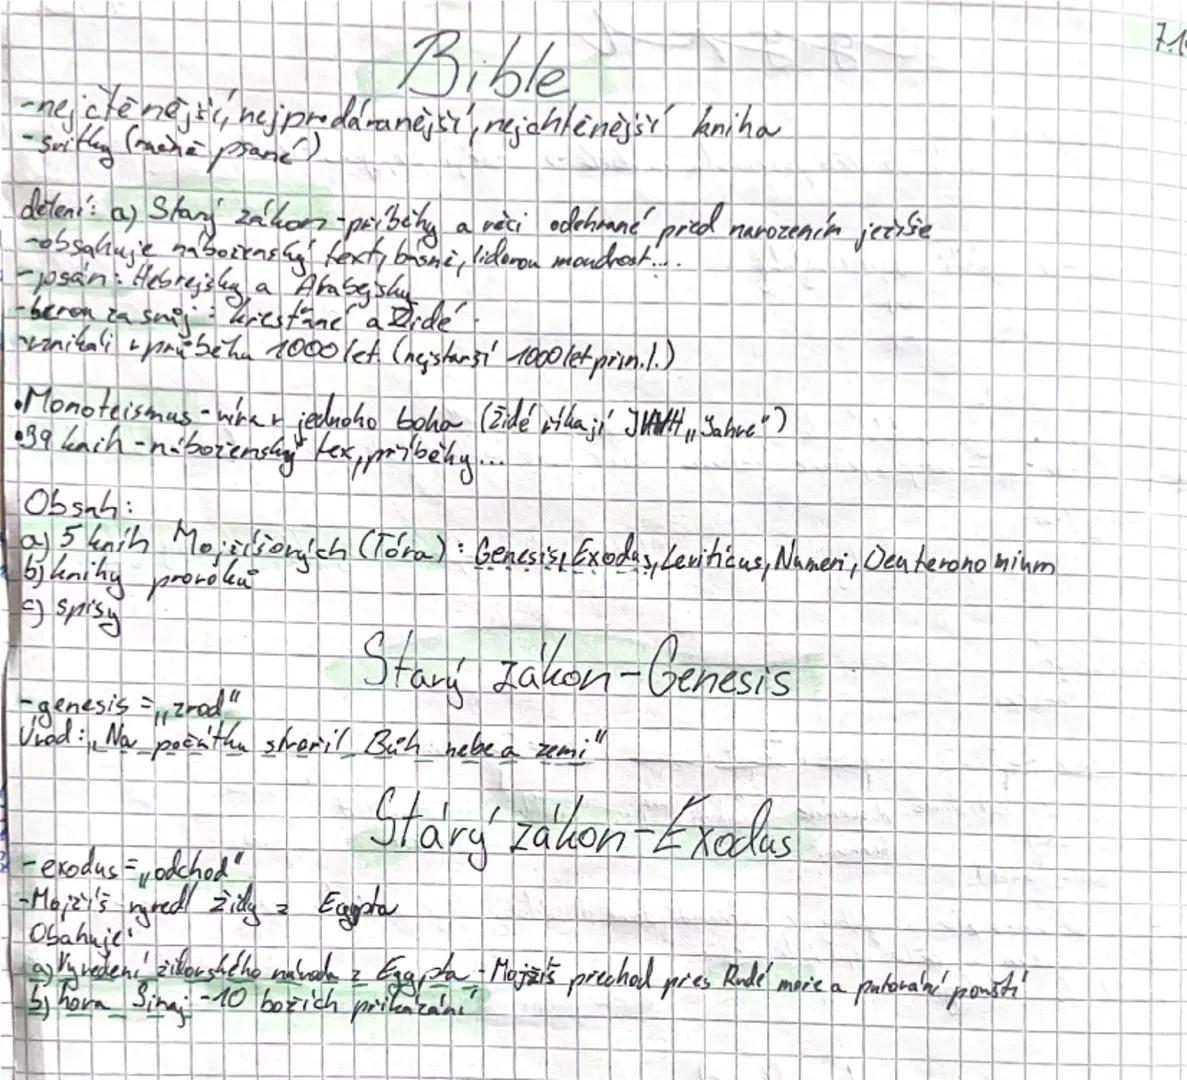 7.1
Bible
-nejčtěnější, nejprodávanější, nejchtěnější kniha
-svitky (ručně psané)
dělení: a) Starý zákon-příběhy a věci odehrané před narozením ježíše
-obsahuje náboženský text, básně, lidovou moudrost...
-psán: Hebrejsky a Arabejsky
-berou za svůj: křesťané a Židé
-vznikali v průběhu 1000let. (nejstarší 1000let přin.l.)
•Monoteismus-víra v jednoho boha (židé říkají JHVH „Jahve")
•39 knih-náboženský tex, příběhy...
Obsah:
a) 5 knih Mojžíšových (Tóra): Genesis, Exodus, Leviticus, Numeri, Deuteronomium
b) knihy proroků
c) spisy
Starý zákon-Genesis
-genesis = „zrod"
Úvod: „Na počátku stvořil Bůh nebe a zemi"
Starý zákon-Exodus
-exodus = „odchod"
-Mojžíš vyvedl židy z Egypta
Obahuje:
a) Vyvedení židovského národa z Egypta - Mojžíš přechod přes Rudé moře a putování pouští
b) hora Sinaj -10 božích přikázání